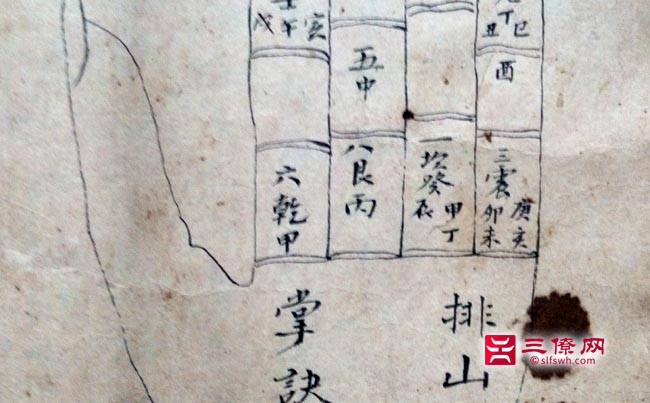 丑丁巳
酉
三震
庚亥
卯未
一坎癸
甲丁
辰
五中
八艮丙
戊午寅
六乾甲
排山
掌訣
三僚网
© slfswh.com